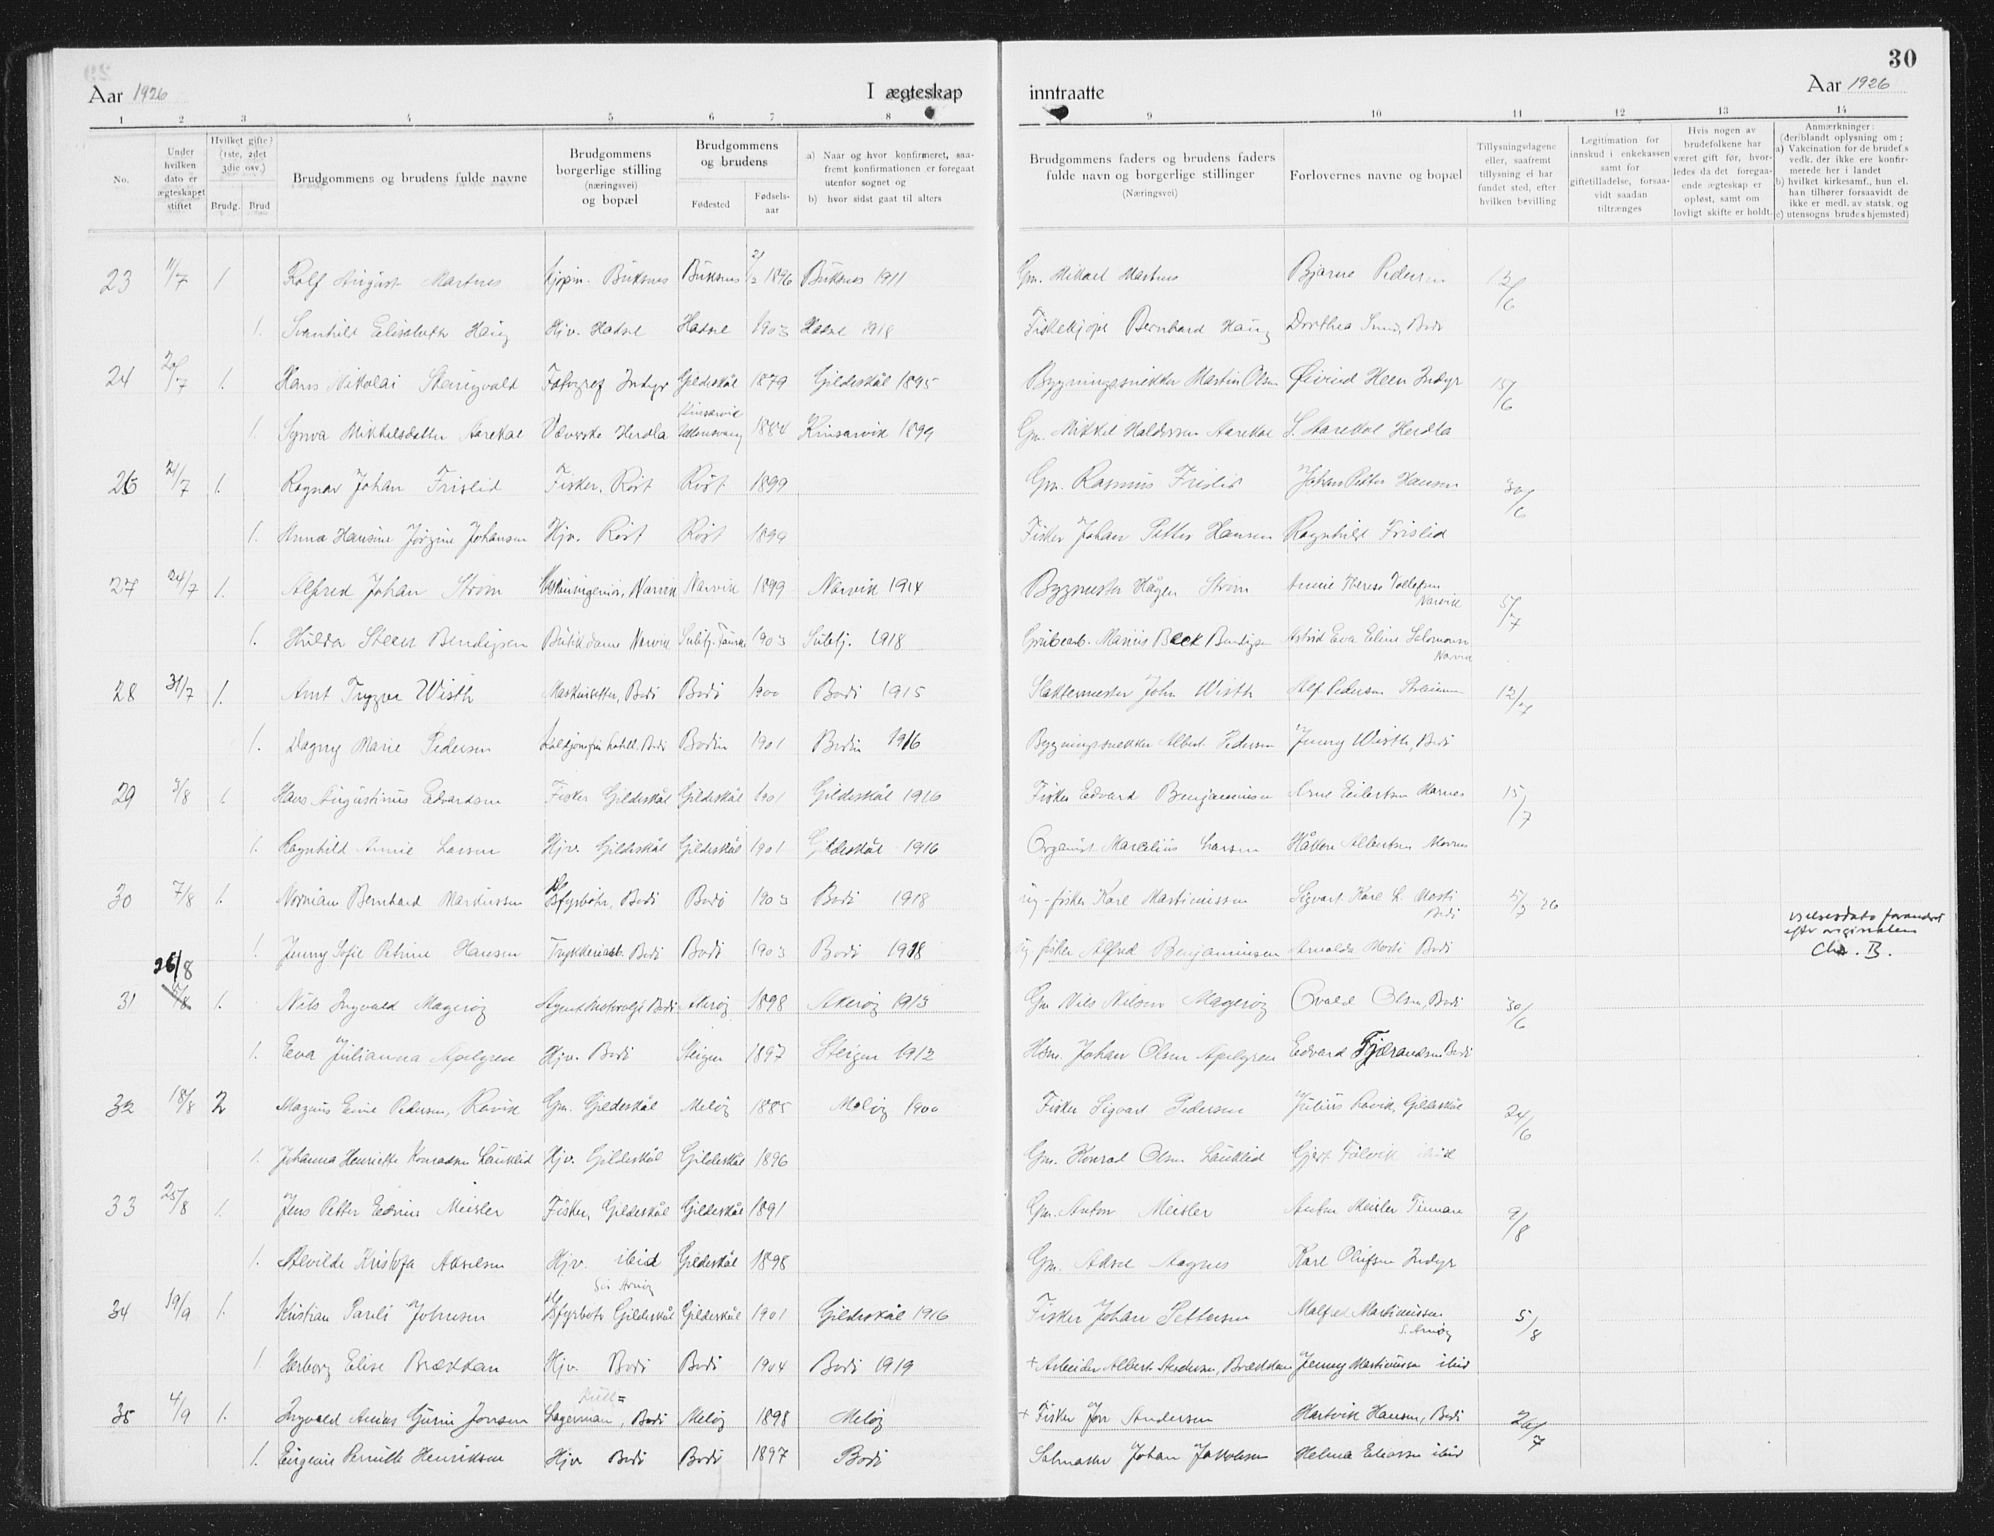 30
Aar 1926 I ægteskap inntraatte Aar 1926
1 2 3 4 5 6 7 8 9 10 11 12 13 14
No.
Under hvilken dato er ægteskapet stiftet
Hvilket gifte? (1ste, 2det 3die osv.)
Brudg. Brud
Brudgommens og brudens fulde navne
Brudgommens borgerlige stilling (næringsvei) og bopæl
Brudgommens og brudens
Fødested Fødsels-aar
a) Naar og hvor konfirmeret, saafremt konfirmationen er foregaat utenfor sognet og
b) hvor sidst gaat til alters
Brudgommens faders og brudens faders fulde navn og borgerlige stillinger (Næringsvei)
Forlovernes navne og bopæl
Tillysningsdagene eller, saafremt tillysning ei har fundet sted, efter hvilken bevilling
Legitimation for innskud i enkekassen samt for giftetilladelse, forsaavidt saadan tiltrænges
Hvis nogen av brudefolkene har været gift før, hvorledes da det foregaaende ægteskap er opløst, samt om lovligt skifte er holdt.
Anmærkninger: (deriblandt oplysning om;
a) Vakcination for de brudef.s vedk. der ikke ere konfirmerede her i landet
b) hvilket kirkesamf., hun el. han tilhører forsaavidt de ikke er medl. av statsk. og
c) utensogns brudes hjemsted)
23 11/7 1. Rolf August Martnes Kjøpm. Buksnes Buksnes 2/2 1896 Buksnes 1911 Gm. Mikael Martnes Bjarne Pedersen 12/6
1. Svanhild Elisabeth Haug Hjv. Hadsel Hadsel 1903 Hadsel 1918 Fiskekjøper Bernhard Haug Dorthea Bodø
24 20/7 1. Hans Nikolai Steingvald Fotograf Indyr Gildeskål 1879 Gildeskål 1895 Bygningssnekker Martin Olsen Øivind Heen Indyr 15/6
1. Synva Mikkelsdatter Aarekol Væverske Herdla Kinsarvik Ullensvang 1884 Kinsarvik 1899 Gm. Mikkel Haldorsen Aarekol S. Aarekol Herdla
26 21/7 1. Ragnar Johan Frislid Fisker, Røst Røst 1899 Gm. Rasmus Frislid Johan Petter Hansen 30/6
1. Anna Hansine Jørgine Johansen Hjv. Røst Røst 1899 Fisker Johan Petter Hansen Ragnhild Frislid
27 24/7 1. Alfred Johan Strøm Narvik Narvik 1899 Narvik 1914 Bygmester Hågen Strøm Annie Therese Tollefsen Narvik 5/7
1. Hulda Steen Bendigsen Butikdame Narvik Sulitj. Fauske 1903 Sulitj. 1918 Grubearb. Marius Beck Bendigsen Astrid Eva Eline Salomonsen Narvik
28 31/7 1. Arnt Trygve Wisth Maskinsetter, Bodø Bodø 1900 Bodø 1915 Slaktermester John Wisth Alf Pedersen 12/7
1. Dagny Marie Pedersen Bodø Bodin 1901 Bodin 1916 Bygningssnekker Albert Pedersen Jenny Wisth, Bodø
29 3/8 1. Hans Augustinus Edvardsen Fisker Gildeskål Gildeskål 1901 Gildeskål 1916 Fisker Edvard Benjaminsen Arne Eilertsen 15/7
1. Ragnhild Annie Larsen Hjv. Gildeskål Gildeskål 1901 Gildeskål 1916 Organist Marcelius Larsen Håkon Albertsen
30 7/8 1. Norman Bernhard Mardussen Fyrbøter, Bodø Bodø 1903 Bodø 1918 fisker Karl Martinussen Sigvart Karl L. Mosti Bodø 5/7 26
1. Jenny Sofie Petrine Hansen Trykkeriarb. Bodø Bodø 1903 Bodø 1918 fisker Alfred Benjaminsen Arnolda Mosti Bodø
vielsesdato forandret efter originalen Chr. B.
26/8
31 1. Nils Ingvald Magerøy Bodø Akerøy 1898 Akerøy 1913 Gm Nils Nilsen Magerøy Osvald Olsen, Bodø 30/6
1. Eva Julianna Apelgren Hjv. Bodø Steigen 1897 Steigen 1912 Hsm. Johan Olsen Apelgren Edvard Fjærandsen Bodø
32 18/8 2 Magnus Emil Pedersen, Ravik Gm. Gildeskål Meløy 1885 Meløy 1900 Fisker Sigvart Pedersen Julius Ravik, Gildeskål 24/6
1. Johanna Henriette Konradsen Lauklid Hjv. Gildeskål Gildeskål 1896 Gm. Konrad Olsen Lauklid Gjert Følvik ibid
33 25/8 1. Jens Petter Edvin Meisler Fisker, Gildeskål Gildeskål 1891 Gm. Anton Meisler Anton Meisler 9/8
1. Alvilde Kristofa Akselsen Hjv. ibid Gildeskål 1898 Gm. Aksel Karl Olufsen Indyr
34 19/9 1. Kristian Pareli Johnsen Fyrbøter Gildeskål Sør Arnøy Gildeskål 1901 Gildeskål 1916 Fisker Johan Pettersen Malfred Martinussen S. Arnøy 5/8
1. Herborg Elise Brækkan Hjv. Bodø Bodø 1904 Bodø 1919 + Arbeider Albert Andersen, Brækkan Jenny Martinussen ibid
35 4/9 1. Ingvald Gurin Jonsen Lagermann, Bodø Meløy 1898 Meløy + Fisker Jon Andersen Hartvik Hansen, Bodø 26/7
1. Eugenie Pernille Henriksen Hjv Bodø Bodø 1897 Bodø Johan Jakobsen Helma ibid